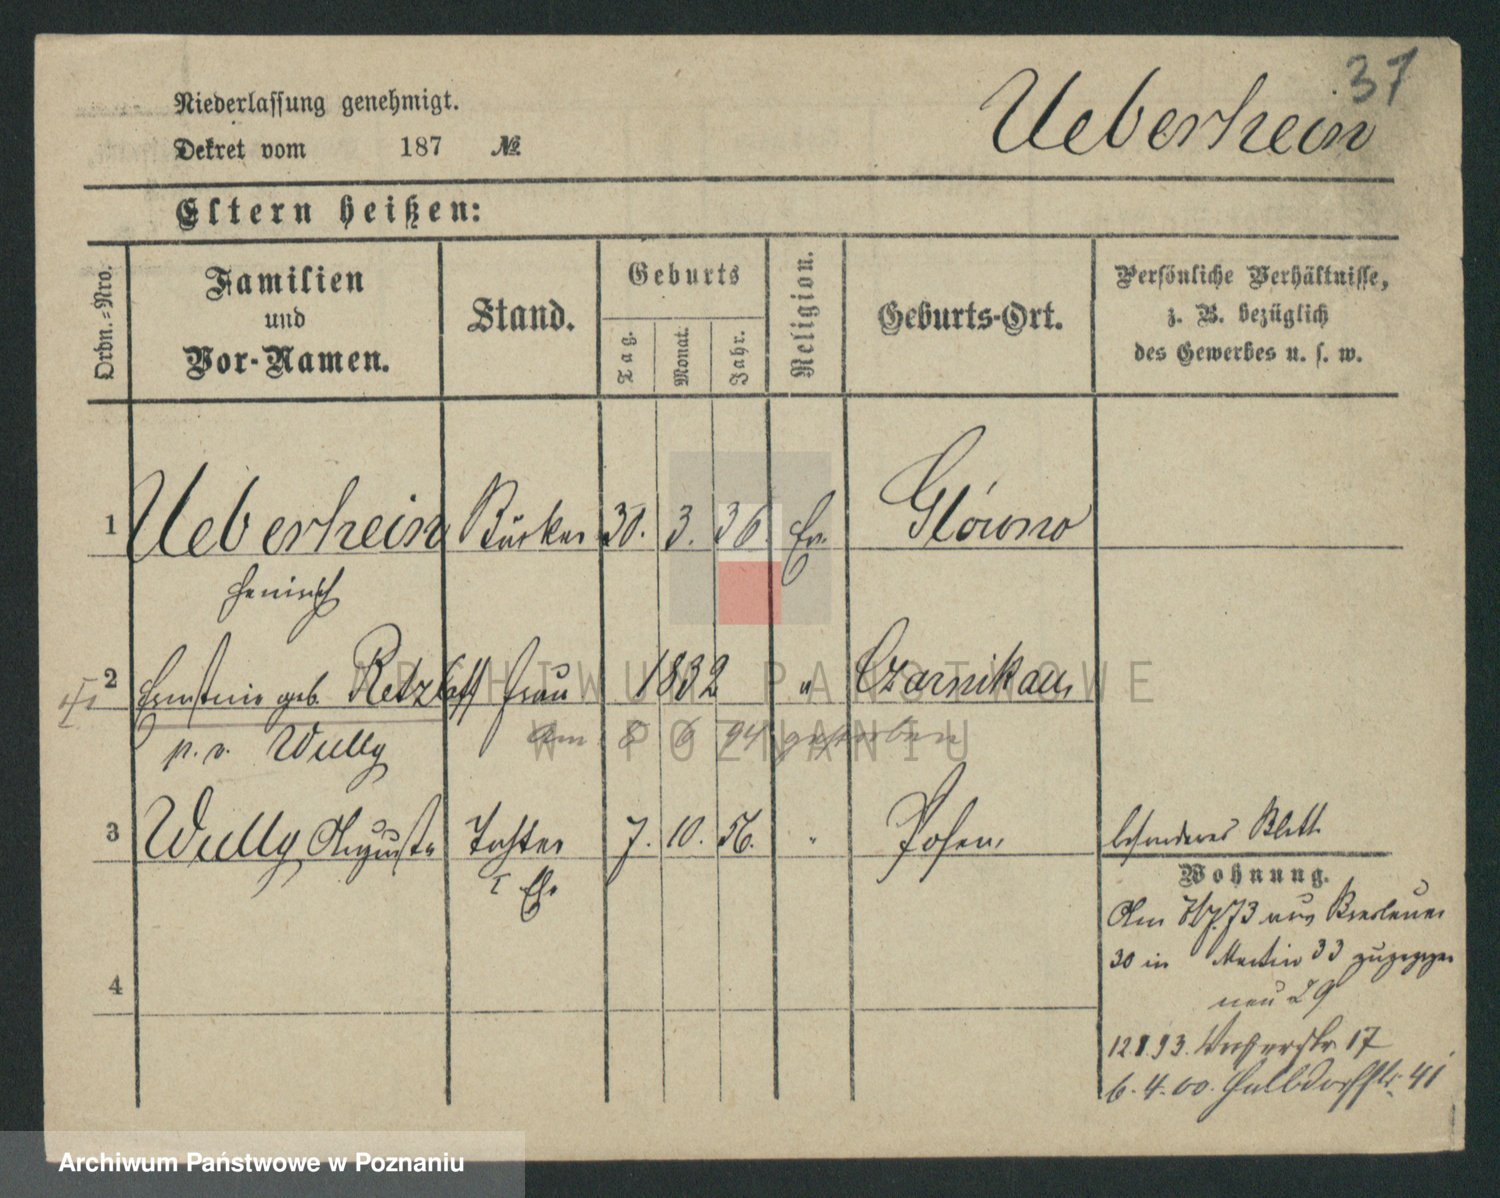 37
Ueberhein
Niederlassung genehmigt.
Dekret vom 187 №
Eltern heißen:
Ordn.-Nro.
Familien
und
Vor-Namen.
Stand.
Geburts
Tag.
Monat.
Jahr.
Religion.
Geburts-Ort.
Persönliche Verhältnisse,
z. B. bezüglich
des Gewerbes u. s. w.
1 Ueberhein 30. 3. 36. Ev. Glówno
Heinrich
2 Ernstine geb. Retzlaff Frau 1832 " Czarnikau
p. v. Wully am 8 6 94 gestorben
3 Wully Auguste Tochter 7. 10. 56. " Posen
besonderes Blatt
Wohnung.
Am 73 aus Breslauer
30 in Martin 33 zugezogen
neu 29
12 8.93. 17
6. 4. 00. Halbdorfstr. 41
4
ARCHIWUM PAŃSTWOWE
W POZNANIU
Archiwum Państwowe w Poznaniu